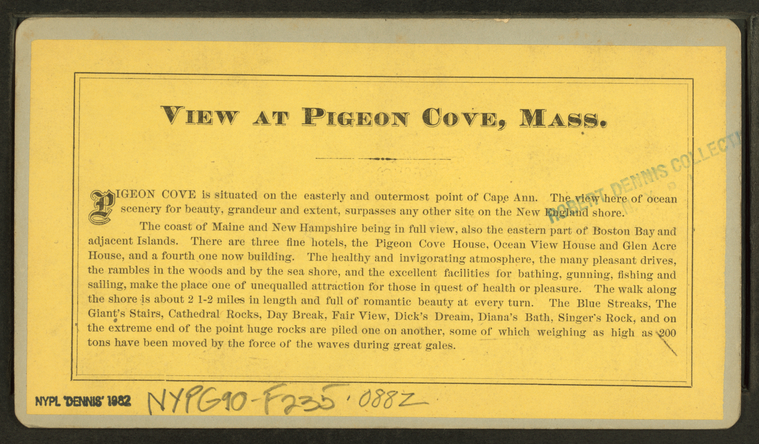 VIEW AT PIGEON COVE, MASS.
PIGEON COVE is situated on the easterly and outermost point of Cape Ann. The view here of ocean
scenery for beauty, grandeur and extent, surpasses any other site on the New England shore.
The coast of Maine and New Hampshire being in full view, also the eastern part of Boston Bay and
adjacent Islands. There are three fine hotels, the Pigeon Cove House, Ocean View House and Glen Acre
House, and a fourth one now building. The healthy and invigorating atmosphere, the many pleasant drives,
the rambles in the woods and by the sea shore, and the excellent facilities for bathing, gunning, fishing and
sailing, make the place one of unequalled attraction for those in quest of health or pleasure. The walk along
the shore is about 2 1-2 miles in length and full of romantic beauty at every turn. The Blue Streaks, The
Giant's Stairs, Cathedral Rocks, Day Break, Fair View, Dick's Dream, Diana's Bath, Singer's Rock, and on
the extreme end of the point huge rocks are piled one on another, some of which weighing as high as 200
tons have been moved by the force of the waves during great gales.
ROBERT DENNIS COLLECTI
NYPL 'DENNIS' 1982
NYPG90-F235.088Z